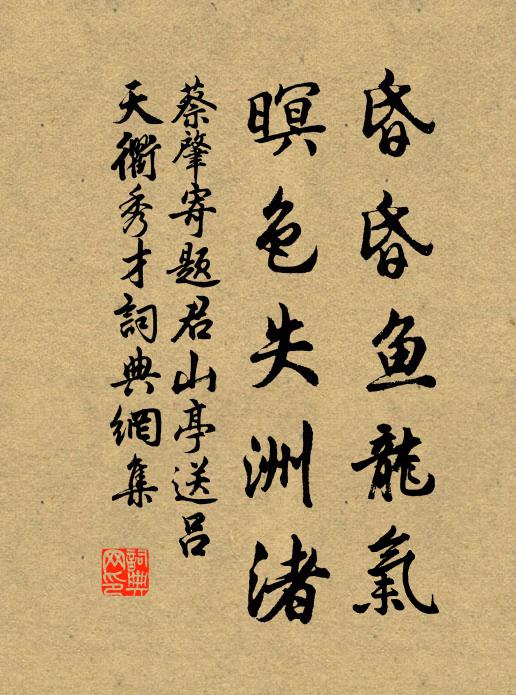 昏昏鱼龍氣
暝色失洲渚
蔡肇寄题君山亭送吕
天衢秀才詞典網集
詞典
网印